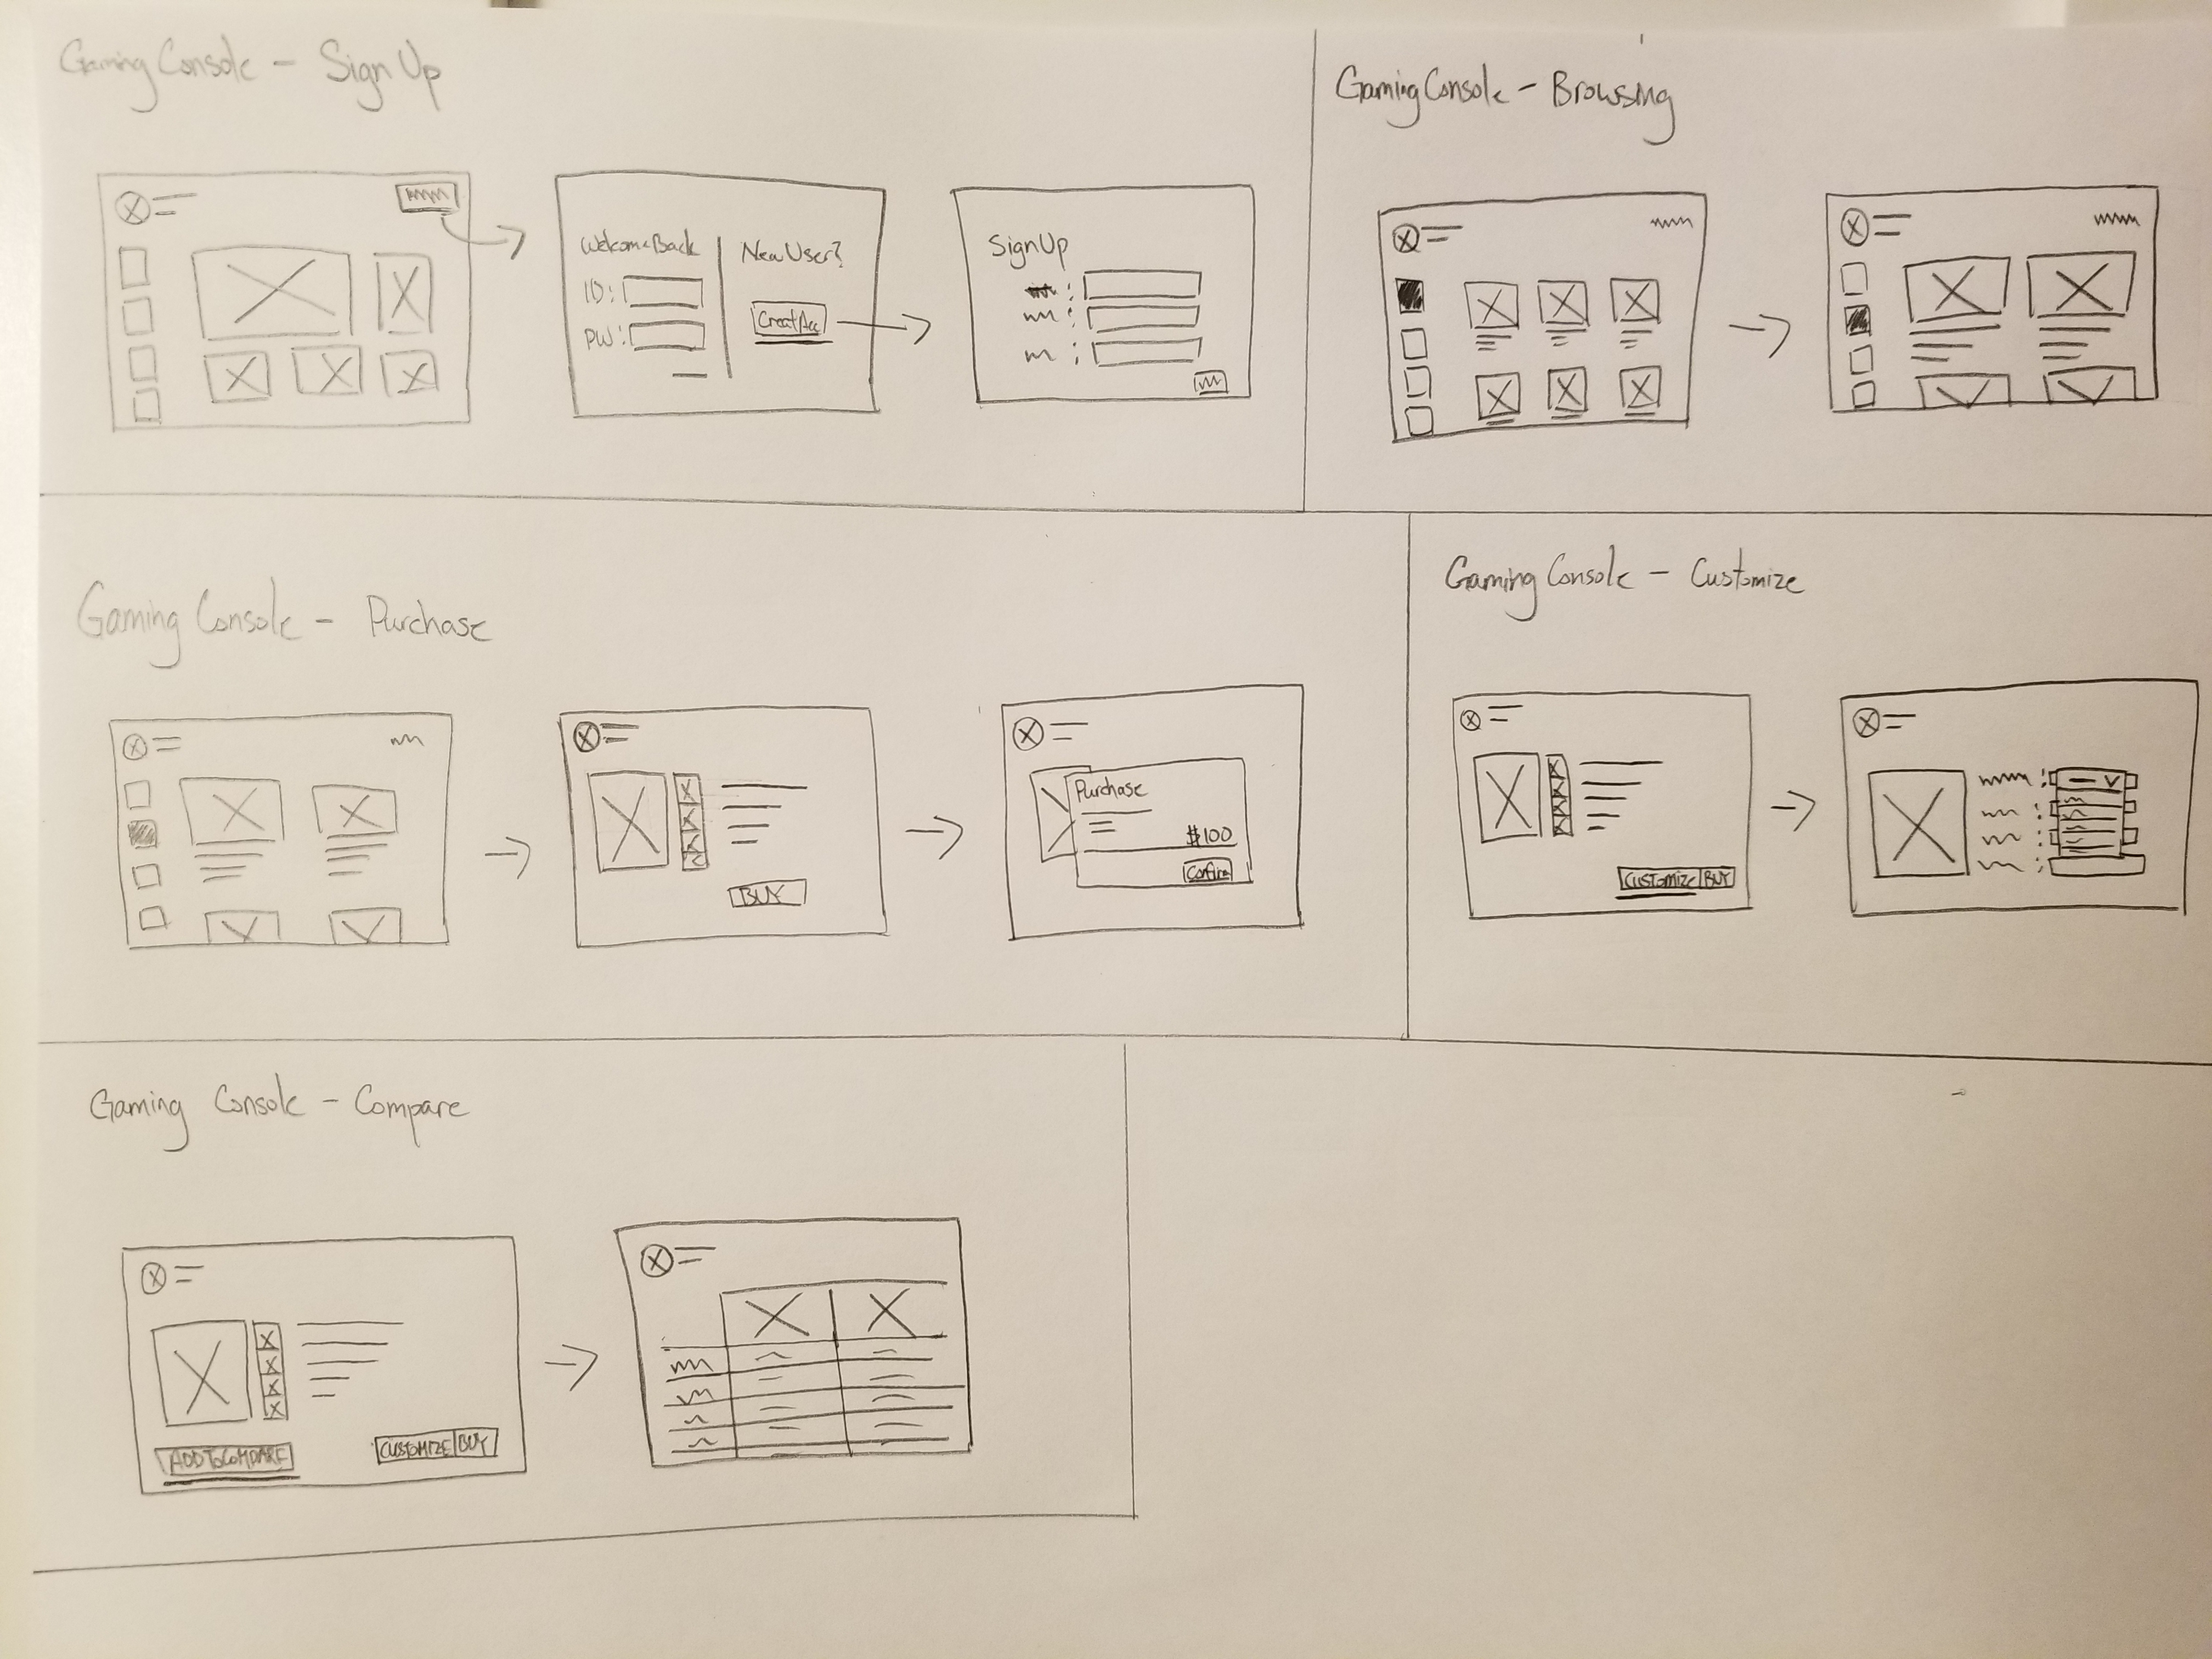 Gaming Console - Sign Up
Welcome Back
ID:
PW:
New User?
Creat Acc
Sign Up
Gaming Console - Browsing
Gaming Console - Purchase
BUY
Purchase
$100
Confirm
Gaming Console - Customize
CUSTOMIZE BUY
Gaming Console - Compare
ADD TO COMPARE
CUSTOMIZE BUY